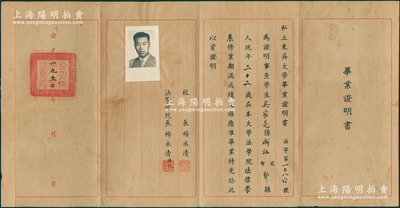 上海陽明拍卖
www.ymauction.com
畢業證明書
私立東吳大學畢業證明書 法字第一〇八六號
為證明事查學生吳家 係浙江省鄞縣
人現年二十二歲在本大學法學院法律學
系修業期滿成績及格應准畢業特先給此
以資證明
校長楊永清
法學院長楊永清
公
月
日
上海陽明拍卖
www.ymauction.com